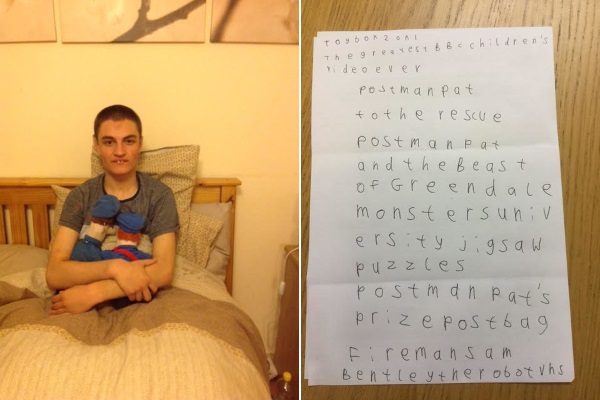 toybonzon1
thegreatestBBcchildren's
videoever
postmanpat
tothe rescue
postmanpat
andtheBeast
ofGreendale
monstersuniv
ersity jigsaw
puzzles
postman pat's
prizepostbag
Firemansam
Bentleytherobotvhs